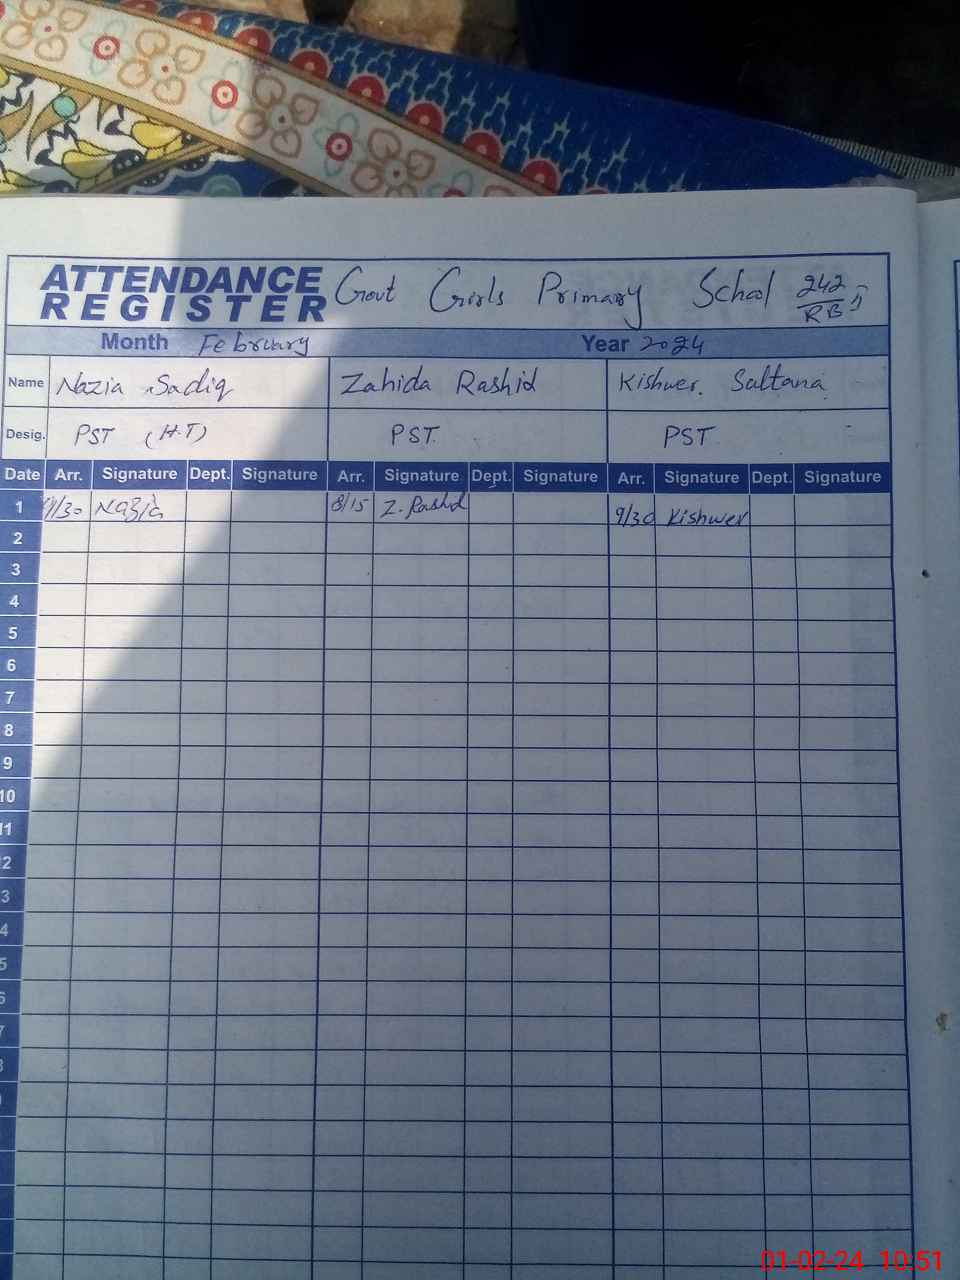 ATTENDANCE REGISTER Govt Girls Primary School 242/RB
Month February Year 2024
Name Nazia Sadiq Zahida Rashid Kishwer Sultana
Desig. PST (H.T) PST PST
Date Arr. Signature Dept. Signature Arr. Signature Dept. Signature Arr. Signature Dept. Signature
1 Nazia 8/15 Z. Rashid 9/30 Kishwer
2
3
4
5
6
7
8
9
10
11
2
3
4
5
6
7
01-02-24 10:51